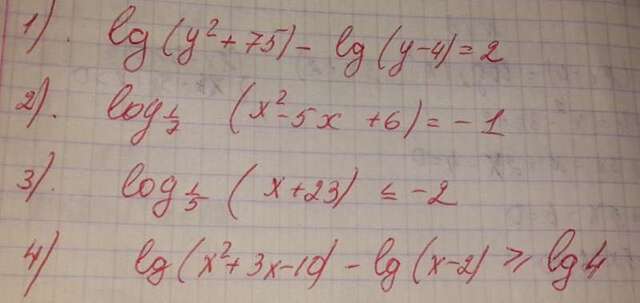 1). lg(y²+75)-lg(y-4)=2
2). log_{1/7} (x²-5x+6)=-1
3). log_{1/5} (x+23) ≤ -2
4) lg(x²+3x-10)-lg(x-2) ≥ lg 4